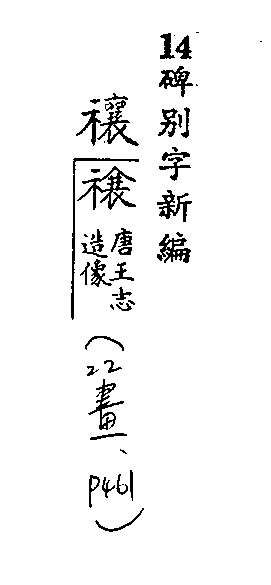 14碑别字新編
禳
唐王志
造像
（22畫、P461）